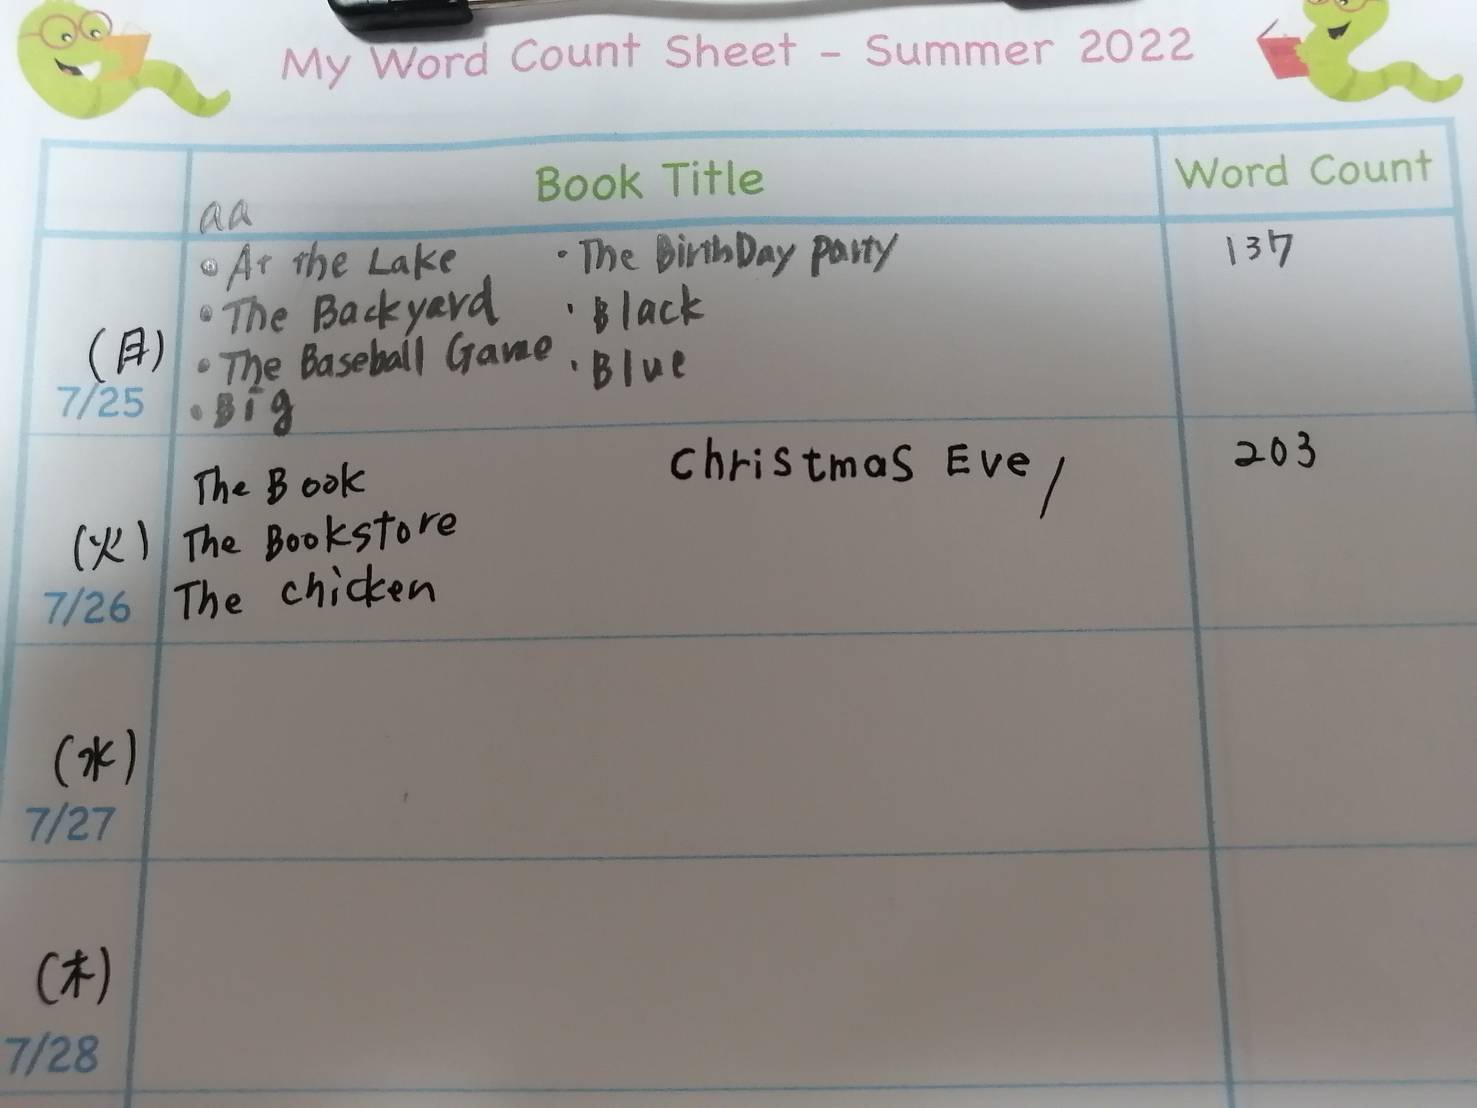 My Word Count Sheet - Summer 2022
Book Title
Word Count
aa
(月)
7/25
• At the Lake
• The Backyard
• The Baseball Game
• Big
• The BirthDay Party
• Black
• Blue
137
(火)
7/26
The Book
The Bookstore
The chicken
Christmas Eve /
203
(水)
7/27
(木)
7/28